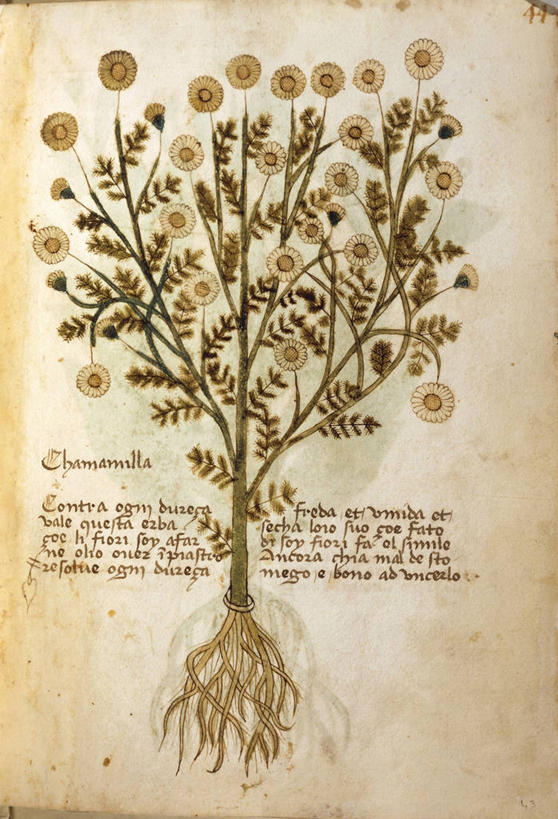 44
Chamamilla
Contra ogni dureça
vale questa erba
çoe li fiori soy afar
ne olio ouer īpiastro
resolue ogni dureça
freda et vmida et
secha loio suo çoe fato
di soy fiori fa el simile
Ancora chia mal de sto
mego e bono ad vncerlo
43